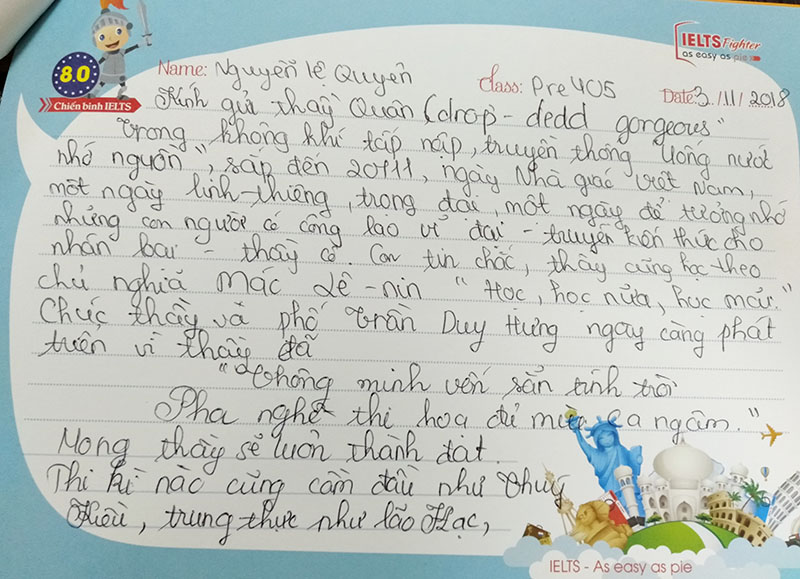 8.0
Chiến binh IELTS
IELTS Fighter
as easy as pie
Name: Nguyễn lê Quyên Class: Pre 405 Date: 3/11/2018
Kính gửi thầy Quân (drop - dedd gorgeous"
Trong không khí tấp nập, truyền thống Uống nước
nhớ nguồn", sắp đến 20/11, ngày Nhà giáo Việt Nam,
một ngày linh thiêng, trọng đại, một ngày để tưởng nhớ
những con người có công lao vĩ đại - truyền kiến thức cho
nhân loại - thầy cô. Con tin chắc, thầy cũng học theo
chủ nghĩa Mác Lê-nin "Học, học nữa, học mãi."
Chúc thầy và phố Trần Duy Hưng ngày càng phát
triển vì thầy đã
"Thông minh vốn sẵn tính trời
Pha nghề thi hoạ đủ mùi ca ngâm."
Mong thầy sẽ luôn thành đạt.
Thi kì nào cũng cầm đầu như Thuý
Kiều, trung thực như lão Hạc,
IELTS - As easy as pie